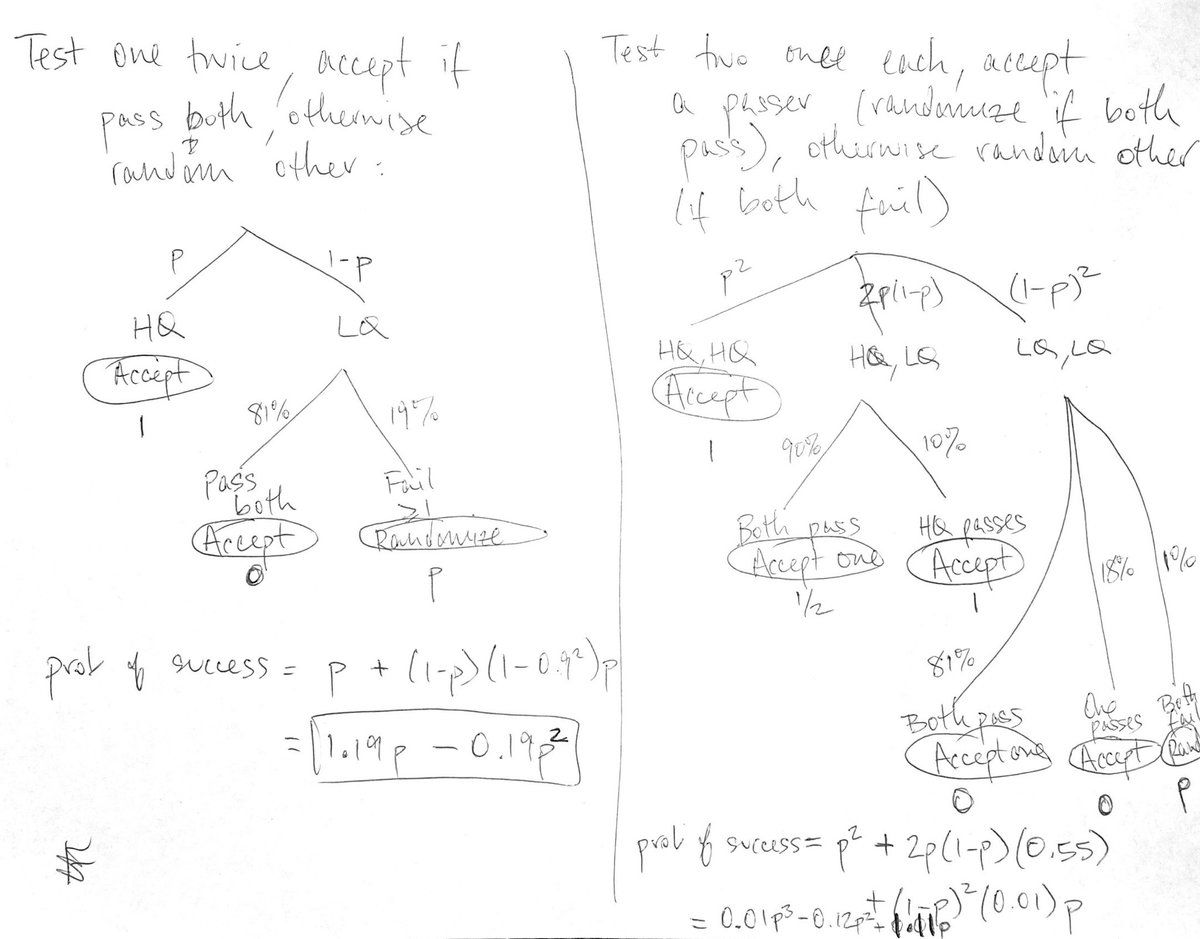 Test one twice, accept if
pass both, otherwise
random other:
p
1-p
HQ
LQ
Accept
1
81%
19%
Pass
both
Accept
0
Fail
≥1
Randomize
p
prob of success = p + (1-p)(1-0.9²)p
= 1.19p - 0.19p²
Test two once each, accept
a passer (randomize if both
pass), otherwise random other
(if both fail)
p²
2p(1-p)
(1-p)²
HQ, HQ
HQ, LQ
LQ, LQ
Accept
1
90%
10%
Both pass
Accept one
1/2
HQ passes
Accept
1
81%
18%
1%
Both pass
Accept one
0
One
passes
Accept
0
Both
fail
Rand
p
prob of success = p² + 2p(1-p)(0.55)
+ (1-p)²(0.01)p
= 0.01p³ - 0.12p² + 1.11p